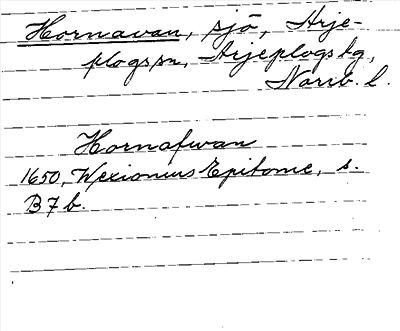 Hornavan, sjö, Arje-
plogs sn, Arjeplogs tg,
Norrb. l.
Hornafwan
1650, Wexionius Epitome, s.
B7b.